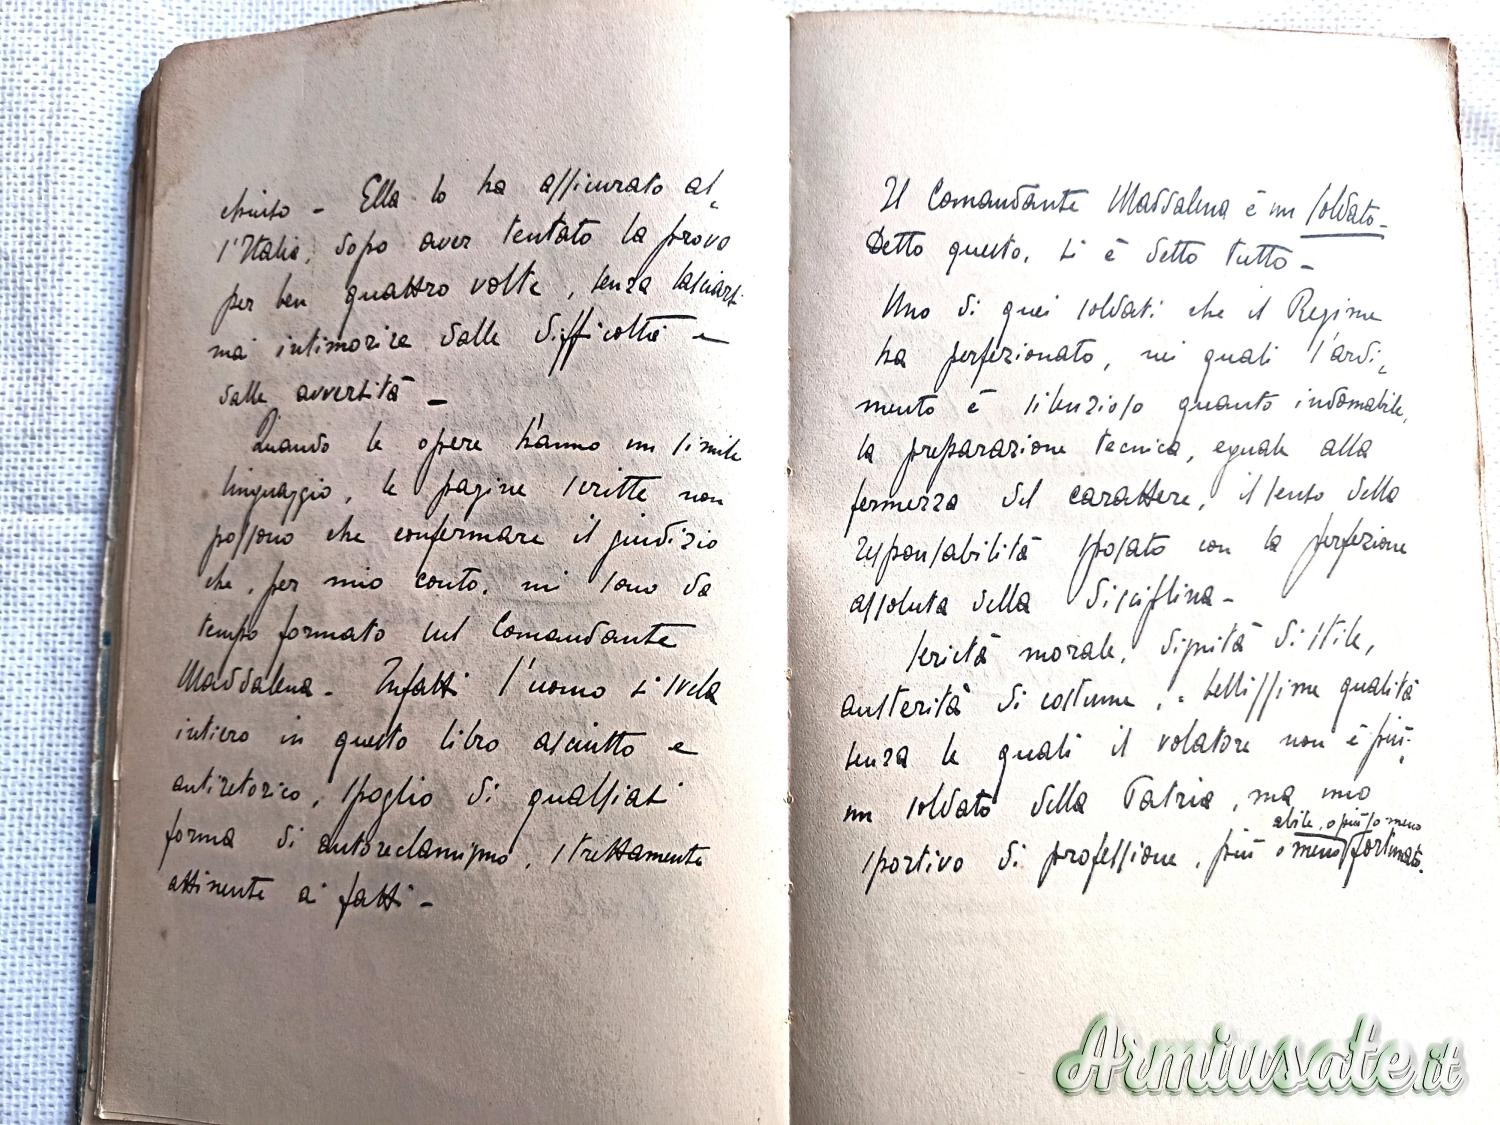 chiuso - Ella lo ha assicurato al-
l'Italia, dopo aver tentato la prova
per ben quattro volte, senza lasciarsi
mai intimorire dalle difficoltà e
dalle avversità -
Quando le opere hanno un simile
linguaggio, le pagine scritte non
possono che confermare il giudizio
che, per mio conto, mi sono da
tempo formato sul Comandante
Maddalena - Infatti l'uomo si svela
intiero in questo libro asciutto e
antiretorico, spoglio di qualsiasi
forma di autoreclamismo, strettamente
attinente ai fatti -
Il Comandante Maddalena è un soldato -
Detto questo, si è detto tutto -
Uno di quei soldati che il Regime
ha perfezionato, nei quali l'ardi-
mento è silenzioso quanto indomabile,
la preparazione tecnica, eguale alla
fermezza del carattere, il senso della
responsabilità sposato con la perfezione
assoluta della disciplina -
Serietà morale, dignità di stile,
austerità di costume, bellissime qualità
senza le quali il volatore non è più
un soldato della Patria, ma uno
sportivo di professione, più o meno
abile, o più o meno
fortunato.
Armiusate.it